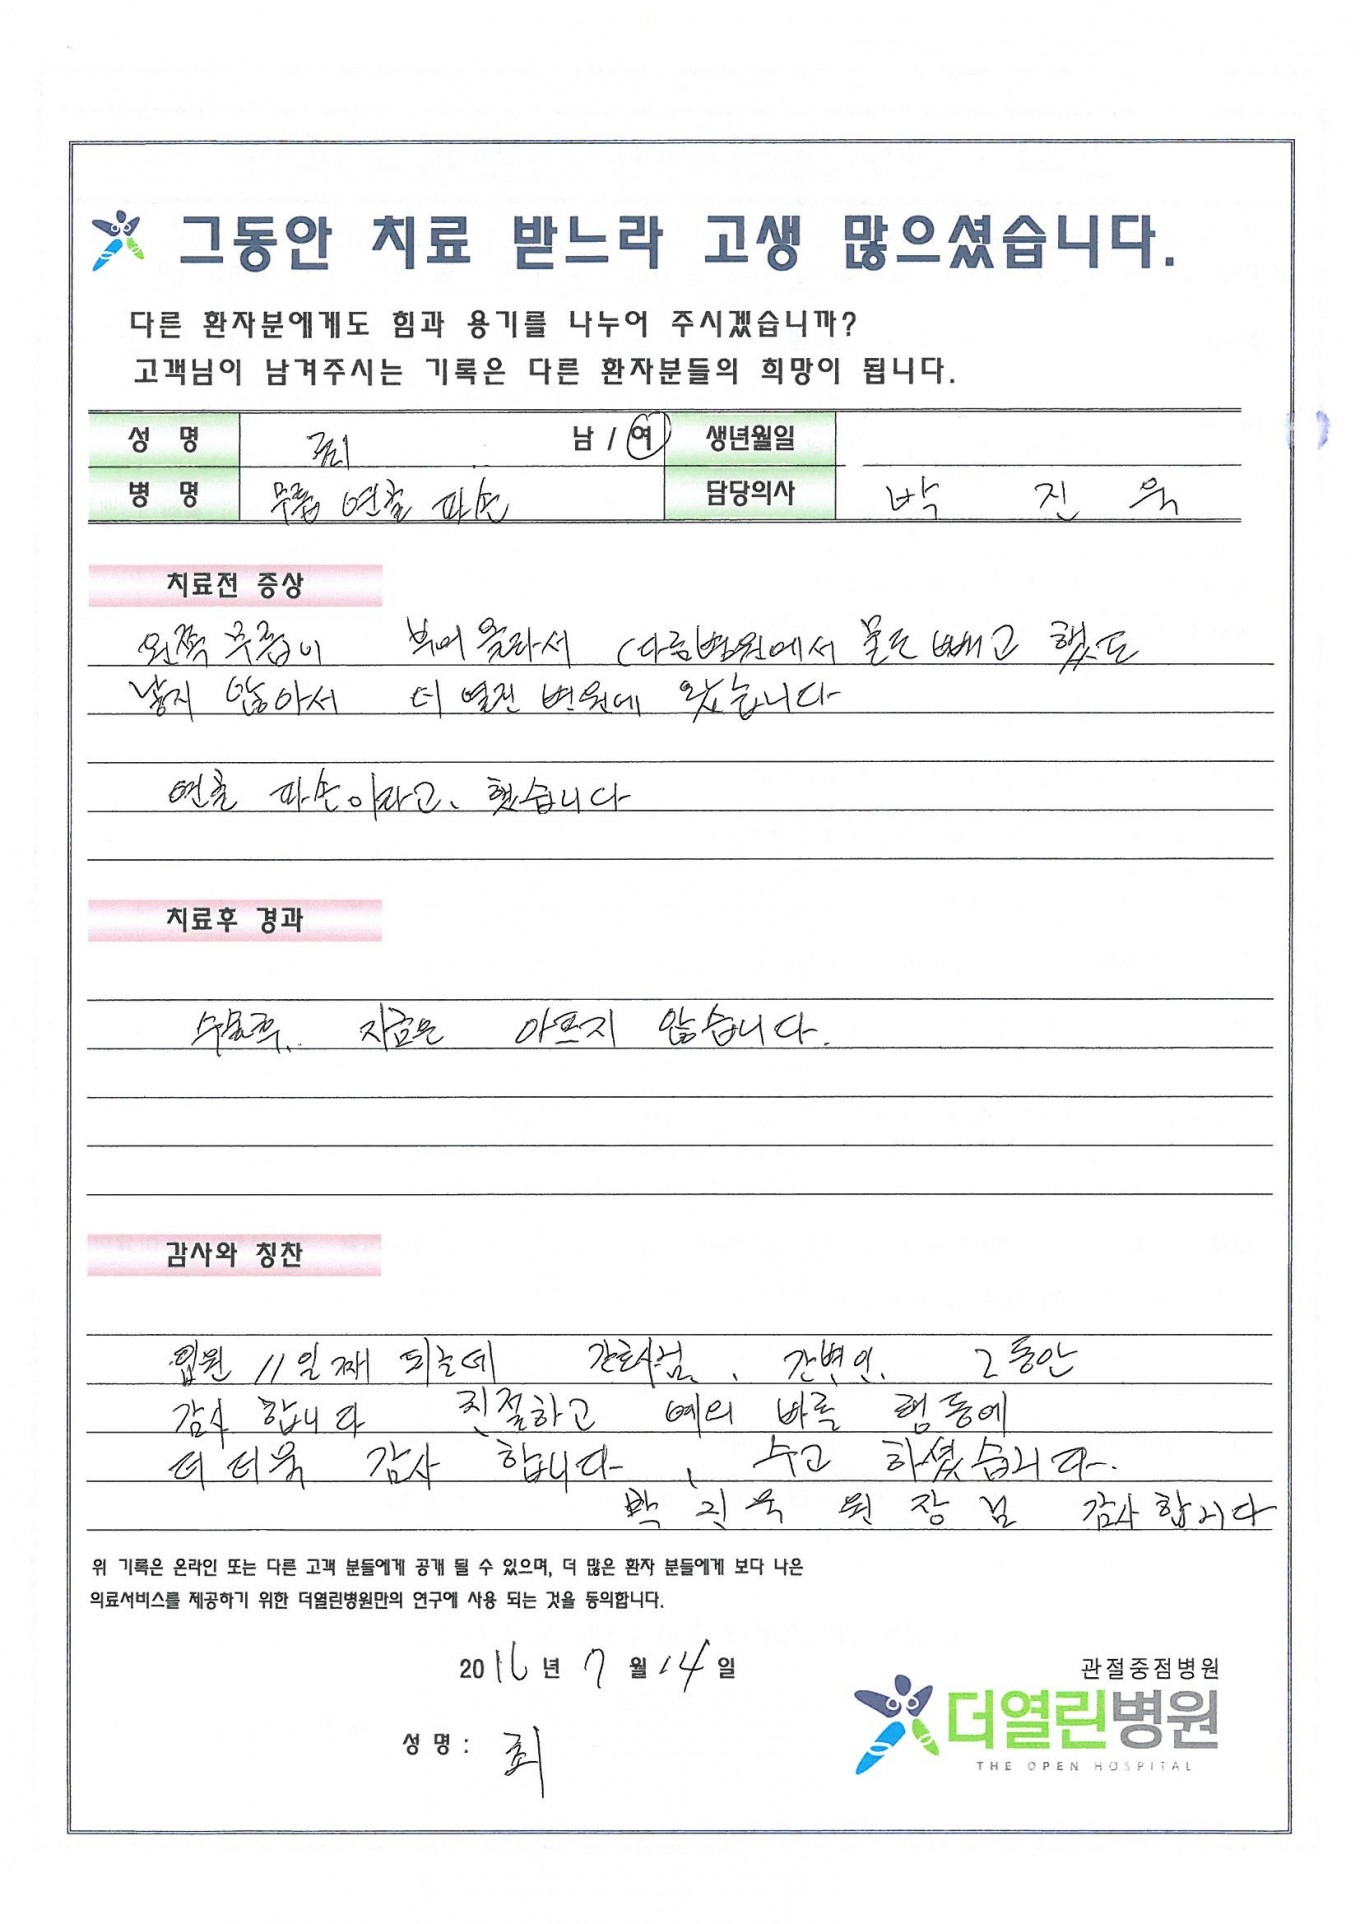 그동안 치료 받느라 고생 많으셨습니다.
다른 환자분에게도 힘과 용기를 나누어 주시겠습니까?
고객님이 남겨주시는 기록은 다른 환자분들의 희망이 됩니다.
성 명 최 남 / 여 생년월일
병 명 무릎 연골 파손 담당의사 박 진 욱
치료전 증상
왼쪽 무릎이 부어 올라서 (다른병원에서 물도 빼고 했도
낳지 않아서 더 열린 병원에 왔습니다
연골 파손이라고, 했습니다
치료후 경과
수술후. 지금은 아프지 않습니다.
감사와 칭찬
입원 11일째 되는데 간호사님, 간병인, 그동안
감사 합니다 친절하고 예의 바른 행동에
더 더욱 감사 합니다, 수고 하셨습니다.
박 진 욱 원 장 님 감사합니다
위 기록은 온라인 또는 다른 고객 분들에게 공개 될 수 있으며, 더 많은 환자 분들에게 보다 나은
의료서비스를 제공하기 위한 더열린병원만의 연구에 사용 되는 것을 동의합니다.
2016년 7월 14일
관절중점병원
성 명 : 최
더열린병원
THE OPEN HOSPITAL